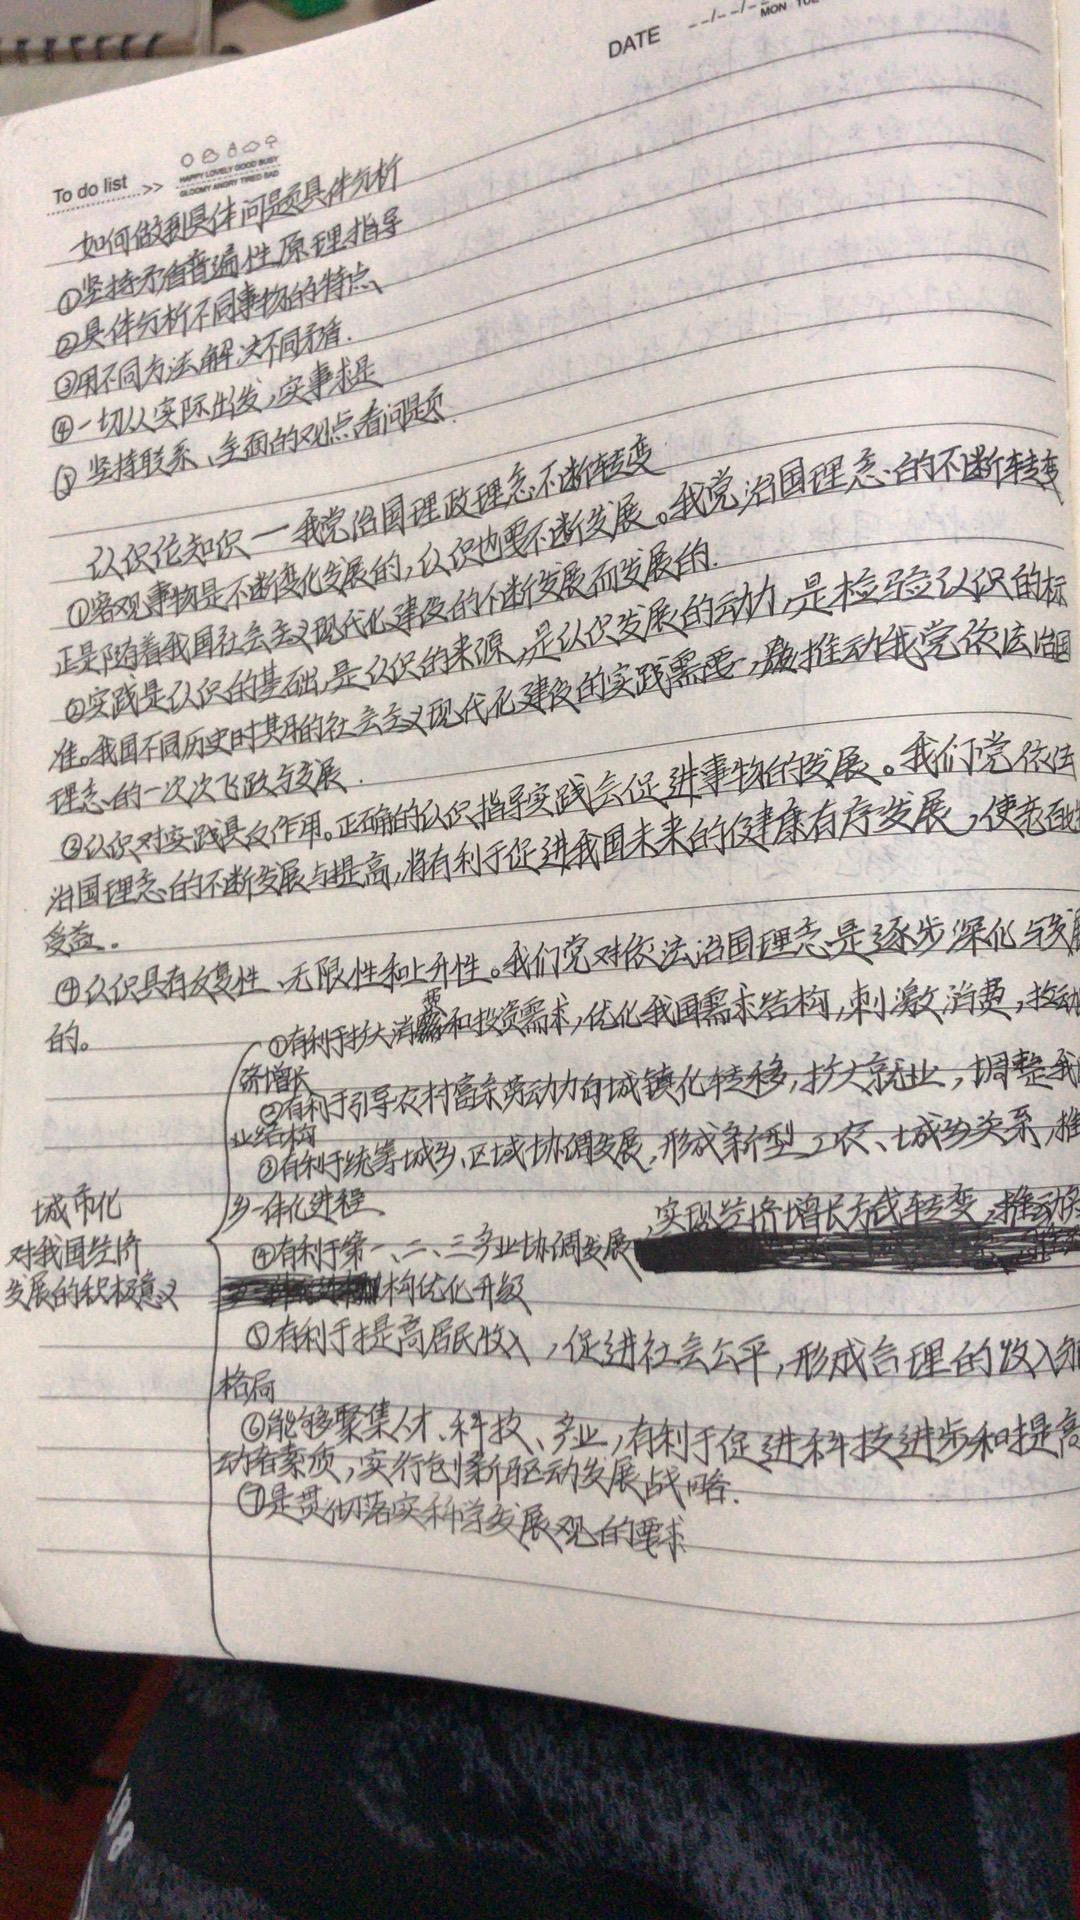 DATE --/--/--
MON TUE
To do list >>
HAPPY LOVELY GOOD BUSY
GLOOMY ANGRY TIRED SAD
如何做到具体问题具体分析
①坚持矛盾普遍性原理指导
②具体分析不同事物的特点
③用不同方法解决不同矛盾.
④一切从实际出发,实事求是
⑤坚持联系、全面的观点看问题.
认识论知识一我党治国理政理念不断转变
①客观事物是不断变化发展的,认识也要不断发展。我党治国理念的不断转变
正是随着我国社会主义现代化建设的不断发展而发展的.
②实践是认识的基础,是认识的来源,是认识发展的动力,是检验认识的标
准。我国不同历史时期的社会主义现代化建设的实践需要,推动我党依法治国
理念的一次次飞跃与发展.
③认识对实践具反作用。正确的认识指导实践会促进事物的发展。我们党依法
治国理念的不断发展与提高,将有利于促进我国未来的健康有序发展,使
受益。
④认识具有反复性、无限性和上升性。我们党对依法治国理念是逐步深化与发展
的。
①有利于扩大消费和投资需求,优化我国需求结构,刺激消费,拉动
济增长
②有利于引导农村富余劳动力向城镇化转移,扩大就业,调整我
业结构
③有利于统筹城乡、区域协调发展,形成新型工农、城乡关系,推
乡一体化进程
城市化
对我国经济
发展的积极意义
④有利于第一、二、三产业协调发展,实现经济增长方式转变,推动
构优化升级
⑤有利于提高居民收入,促进社会公平,形成合理的收入
格局
⑥能够聚集人才、科技、产业,有利于促进科技进步和提高
动者素质,实行创新驱动发展战略.
⑦是贯彻落实科学发展观的要求